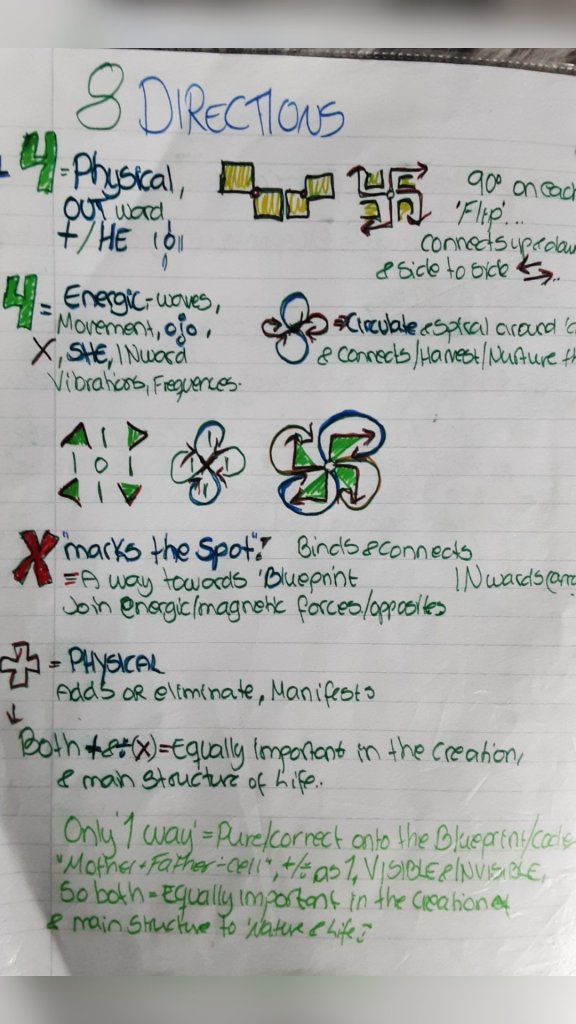 8 DIRECTIONS
4 = Physical,
OUT word
+/HE
90° on each
'Flip'...
connects up&dow
& side to side
4 = Energic-waves,
Movement,
X, SHE, INward
Vibrations, Frequences.
= Circulate & spiral around
& connects/Harvest/Nurture th
X "marks the spot". Binds & connects
= A way towards 'Blueprint INwards
Join energic/magnetic forces/opposites
= PHYSICAL
Adds OR eliminate, Manifests
Both + & ÷ (x) = Equally important in the creation,
& main structure of Life..
Only '1 way' = Pure/correct onto the Blueprint/code
"Mother+Father-cell", +/÷ as 1, VISIBLE & INVISIBLE,
So both = Equally important in the creation of
& main structure to 'Nature & Life